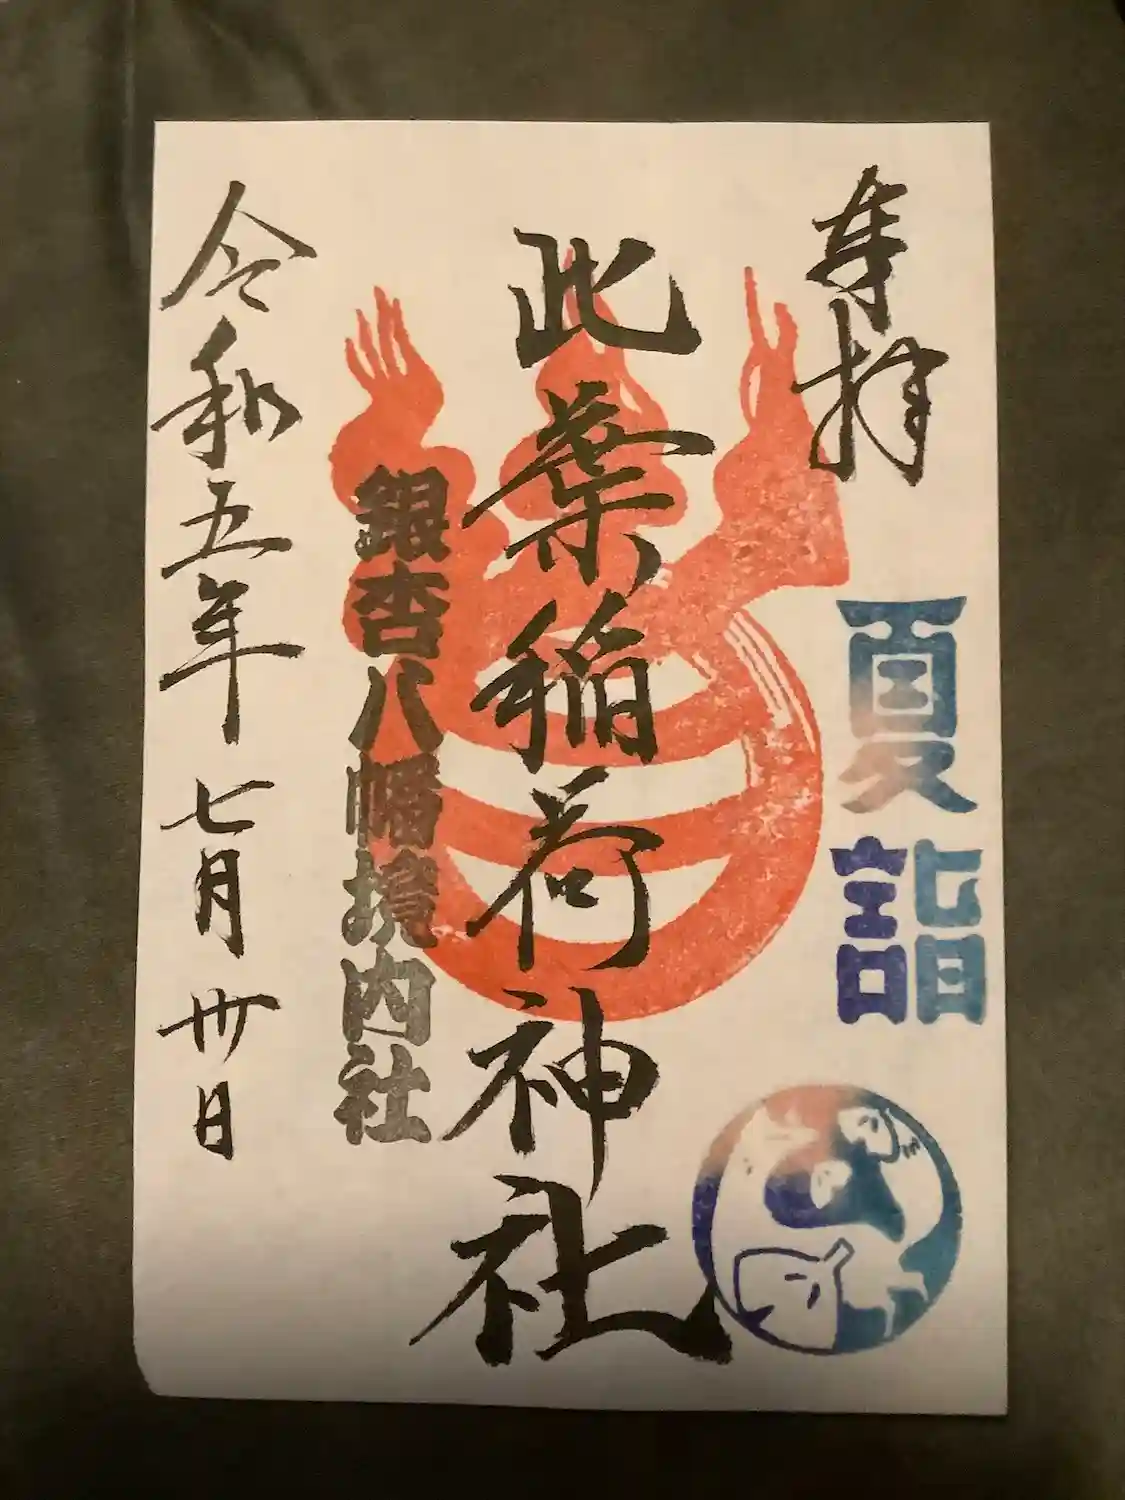 奉拝
夏詣
此葉稲荷神社
銀杏八幡境内社
令和五年七月卅日